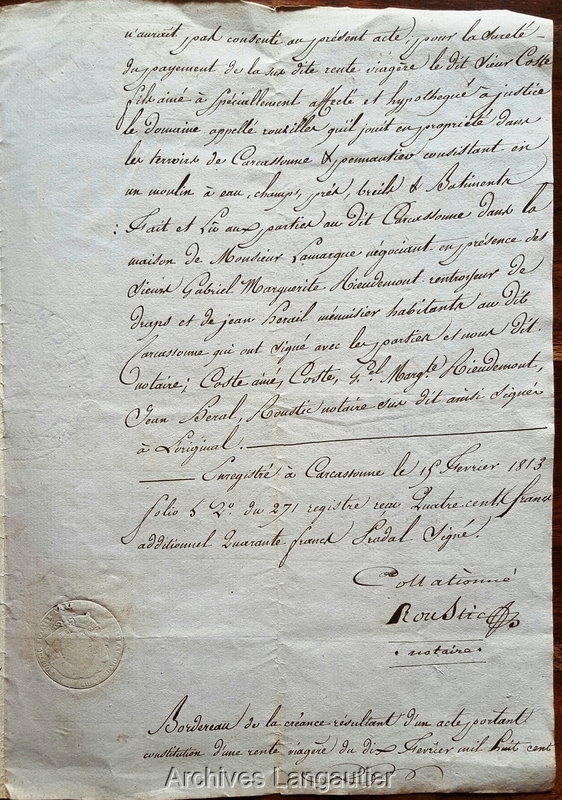 n'aurait pas consenté au présent acte; pour la Sureté
du payement de la sus dite rente viagère le dit Sieur Coste
fils ainé à Spéciallement affecté et hypothequé à justice
le domaine appellé rouxilles qu'il jouit en propriété dans
les terroirs de Carcassonne & pennautier consistant en
un moulin à eau, champs, prés, breils & Batiments
Fait et Lu aux parties au dit Carcassonne dans la
maison de Monsieur Lamarque négociant en présence des
Sieurs Gabriel Marguerite Rieudemont rentroyeur de
draps et de jean herail ménuisier habitants au dit
Carcassonne qui ont Signé avec les parties et nous dit
notaire; Coste ainé, Coste, G.el Marg.te Rieudemont,
Jean Heral, Roustic notaire sus dit ainsi Signés
à L'original.
Enregistré à Carcassonne le 15 Fevrier 1813
folio 5 Vo. du 271 registre recu Quatre cents francs
additionnel Quarante francs Pradal Signé.
Collationné
Roustic
notaire
Bordereau de la créance résultant d'un acte portant
constitution d'une rente viagère du dix Fevrier mil huit cent
Archives Langautier